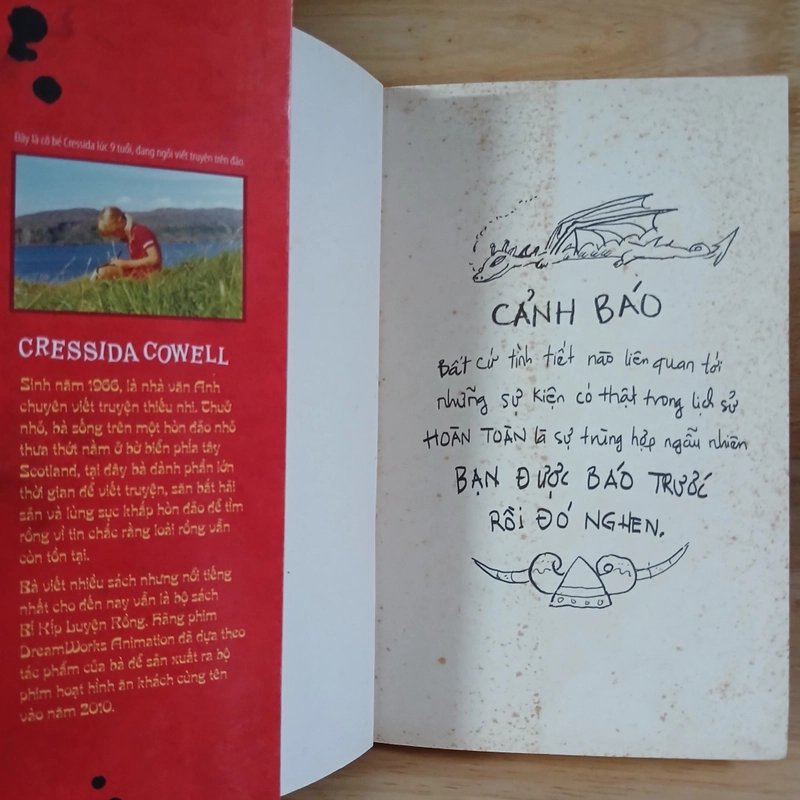 Đây là cô bé Cressida lúc 9 tuổi, đang ngồi viết truyện trên đảo.
CRESSIDA COWELL
Sinh năm 1966, là nhà văn Anh
chuyên viết truyện thiếu nhi. Thuở
nhỏ, bà sống trên một hòn đảo nhỏ
thưa thớt nằm ở bờ biển phía tây
Scotland, tại đây bà dành phần lớn
thời gian để viết truyện, săn bắt hải
sản và lùng sục khắp hòn đảo để tìm
rồng vì tin chắc rằng loài rồng vẫn
còn tồn tại.
Bà viết nhiều sách nhưng nổi tiếng
nhất cho đến nay vẫn là bộ sách
Bí Kíp Luyện Rồng. Hãng phim
DreamWorks Animation đã dựa theo
tác phẩm của bà để sản xuất ra bộ
phim hoạt hình ăn khách cùng tên
vào năm 2010.
CẢNH BÁO
Bất cứ tình tiết nào liên quan tới
những sự kiện có thật trong lịch sử
HOÀN TOÀN là sự trùng hợp ngẫu nhiên
BẠN ĐƯỢC BÁO TRƯỚC
RỒI ĐÓ NGHEN.